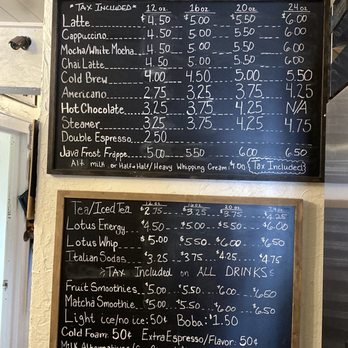 *TAX INCLUDED* 12 oz 16 oz 20 oz 24 oz
Latte $4.50 $5.00 $5.50 $6.00
Cappuccino 4.50 5.00 5.50 6.00
Mocha/White Mocha 4.50 5.00 5.50 6.00
Chai Latte 4.50 5.00 5.50 6.00
Cold Brew 4.00 4.50 5.00 5.50
Americano 2.75 3.25 3.75 4.25
Hot Chocolate 3.25 3.75 4.25 N/A
Steamer 3.25 3.75 4.25 4.75
Double Espresso 2.50
Java Frost Frappe 5.00 5.50 6.00 6.50
Alt. milk or Half+Half/Heavy Whipping Cream (Tax Included)
12 oz 16 oz 20 oz 24 oz
Tea/Iced Tea $2.75 $3.25 $3.75 $4.25
Lotus Energy $4.50 $5.00 $5.50 $6.00
Lotus Whip $5.00 $5.50 $6.00 $6.50
Italian Sodas $3.25 $3.75 $4.25 $4.75
TAX Included on ALL DRINKS
Fruit Smoothies $5.00 $5.50 $6.00 $6.50
Matcha Smoothie $5.00 $5.50 $6.00 $6.50
Light ice/no ice: 50¢ Boba: $1.50
Cold Foam: 50¢ Extra Espresso/Flavor: 50¢
Milk Alternatives